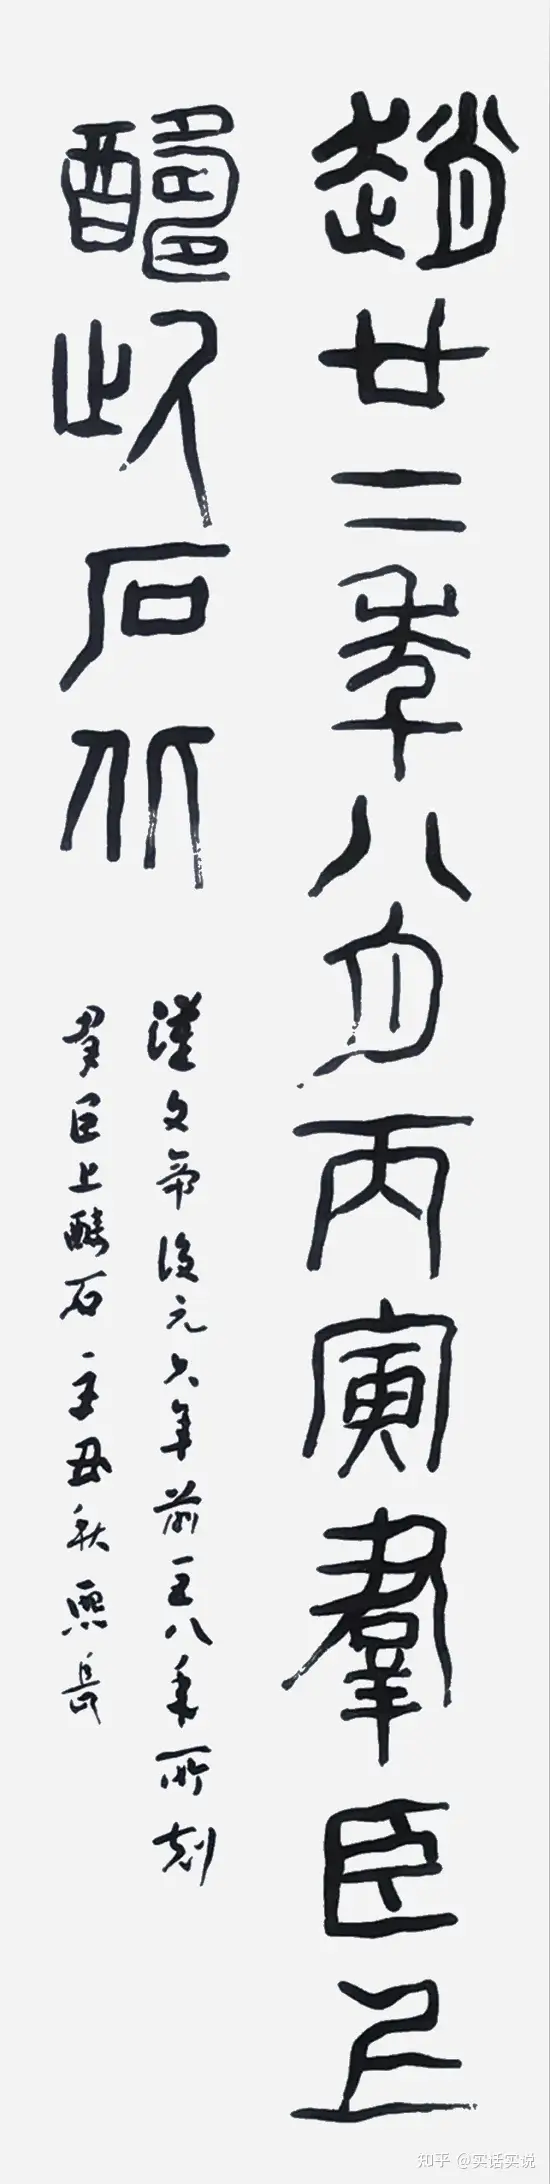 趙廿二年八月丙寅羣臣上
醻此石北
漢文帝後元六年前一五八年所刻
羣臣上醻石辛丑秋熙長
知乎 @实话实说